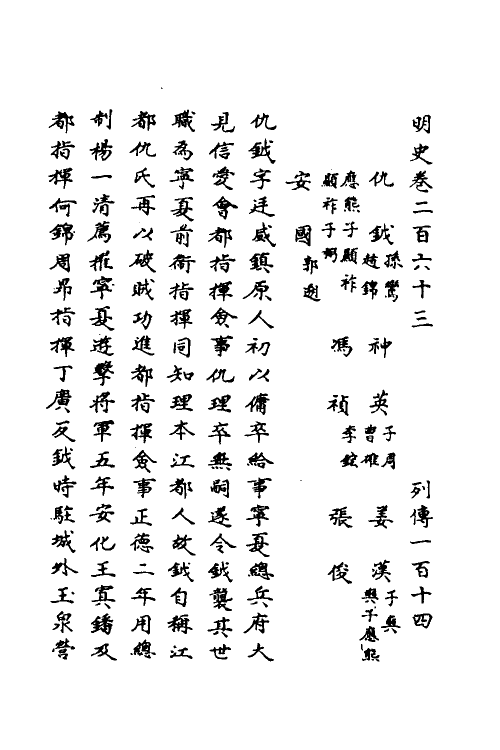 明史卷二百六十三　列傳一百十四
仇鉞孫鸞　趙錦　神英子周　曹雄　姜漢子奭　奭子應熊
應熊子顯祚　顯祚子弼　馮禎李鋐　張俊
安國郭逊
仇鉞字廷威鎮原人初以傭卒給事寧夏總兵府大
見信愛會都指揮僉事仇理卒無嗣遂令鉞襲其世
職為寧夏前衛指揮同知理本江都人故鉞自稱江
都仇氏再以破賊功進都指揮僉事正德二年用總
制楊一清薦推寧夏遊擊將軍五年安化王寘鐇及
都指揮何錦周昻指揮丁廣反鉞時駐城外玉泉營